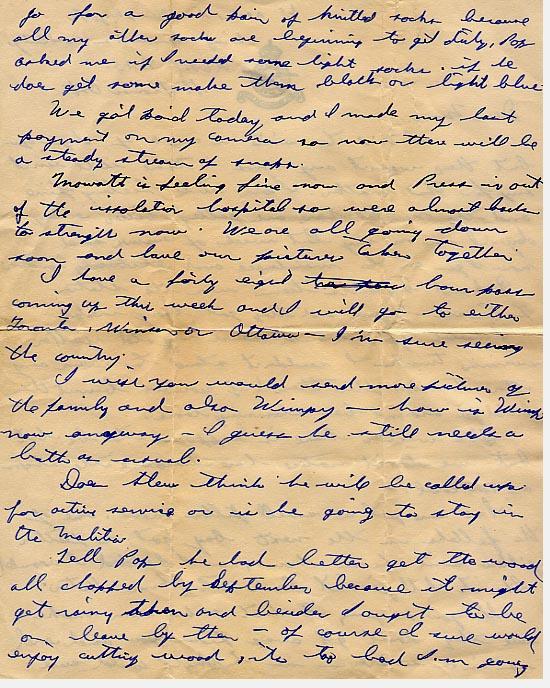 go for a good pair of knitted socks because
all my other socks are beginning to get dirty, Pop
asked me if I needed some light socks. if he
does get some make them black or light blue
We got paid today and I made my last
payment on my camera so now there will be
a steady stream of snaps.
Mowatt is feeling fine now and Press is out
of the issolation hospital so were almost back
to strength now. We are all going down
soon and have our pictures taken together.
I have a forty eight hour pass
coming up this week and I will go to either
Toronto, Winsor or Ottawa — I'm sure seeing
the country.
I wish you would send more pictures of
the family and also Wimpy — how is Wimp
now anyway — I guess he still needs a
bath as usual.
Does Stew think he will be called up
for active service or is he going to stay in
the Malitia
Tell Pop he had better get the wood
all chopped by September because it might
get rainy then and besides I ought to be
on leave by then — of course I sure would
enjoy cutting wood, its to bad I'm going